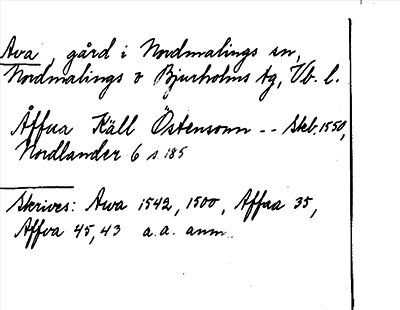 Ava, gård i Nordmalings sn,
Nordmalings o Bjurholms tg, Vb. l.
Åffua Käll Östensonn -- Skeb. 1550,
Nordlander 6 s. 185
Skrives: Awa 1542, 1500, Affua 35,
Affva 45, 43 a. a. anm.